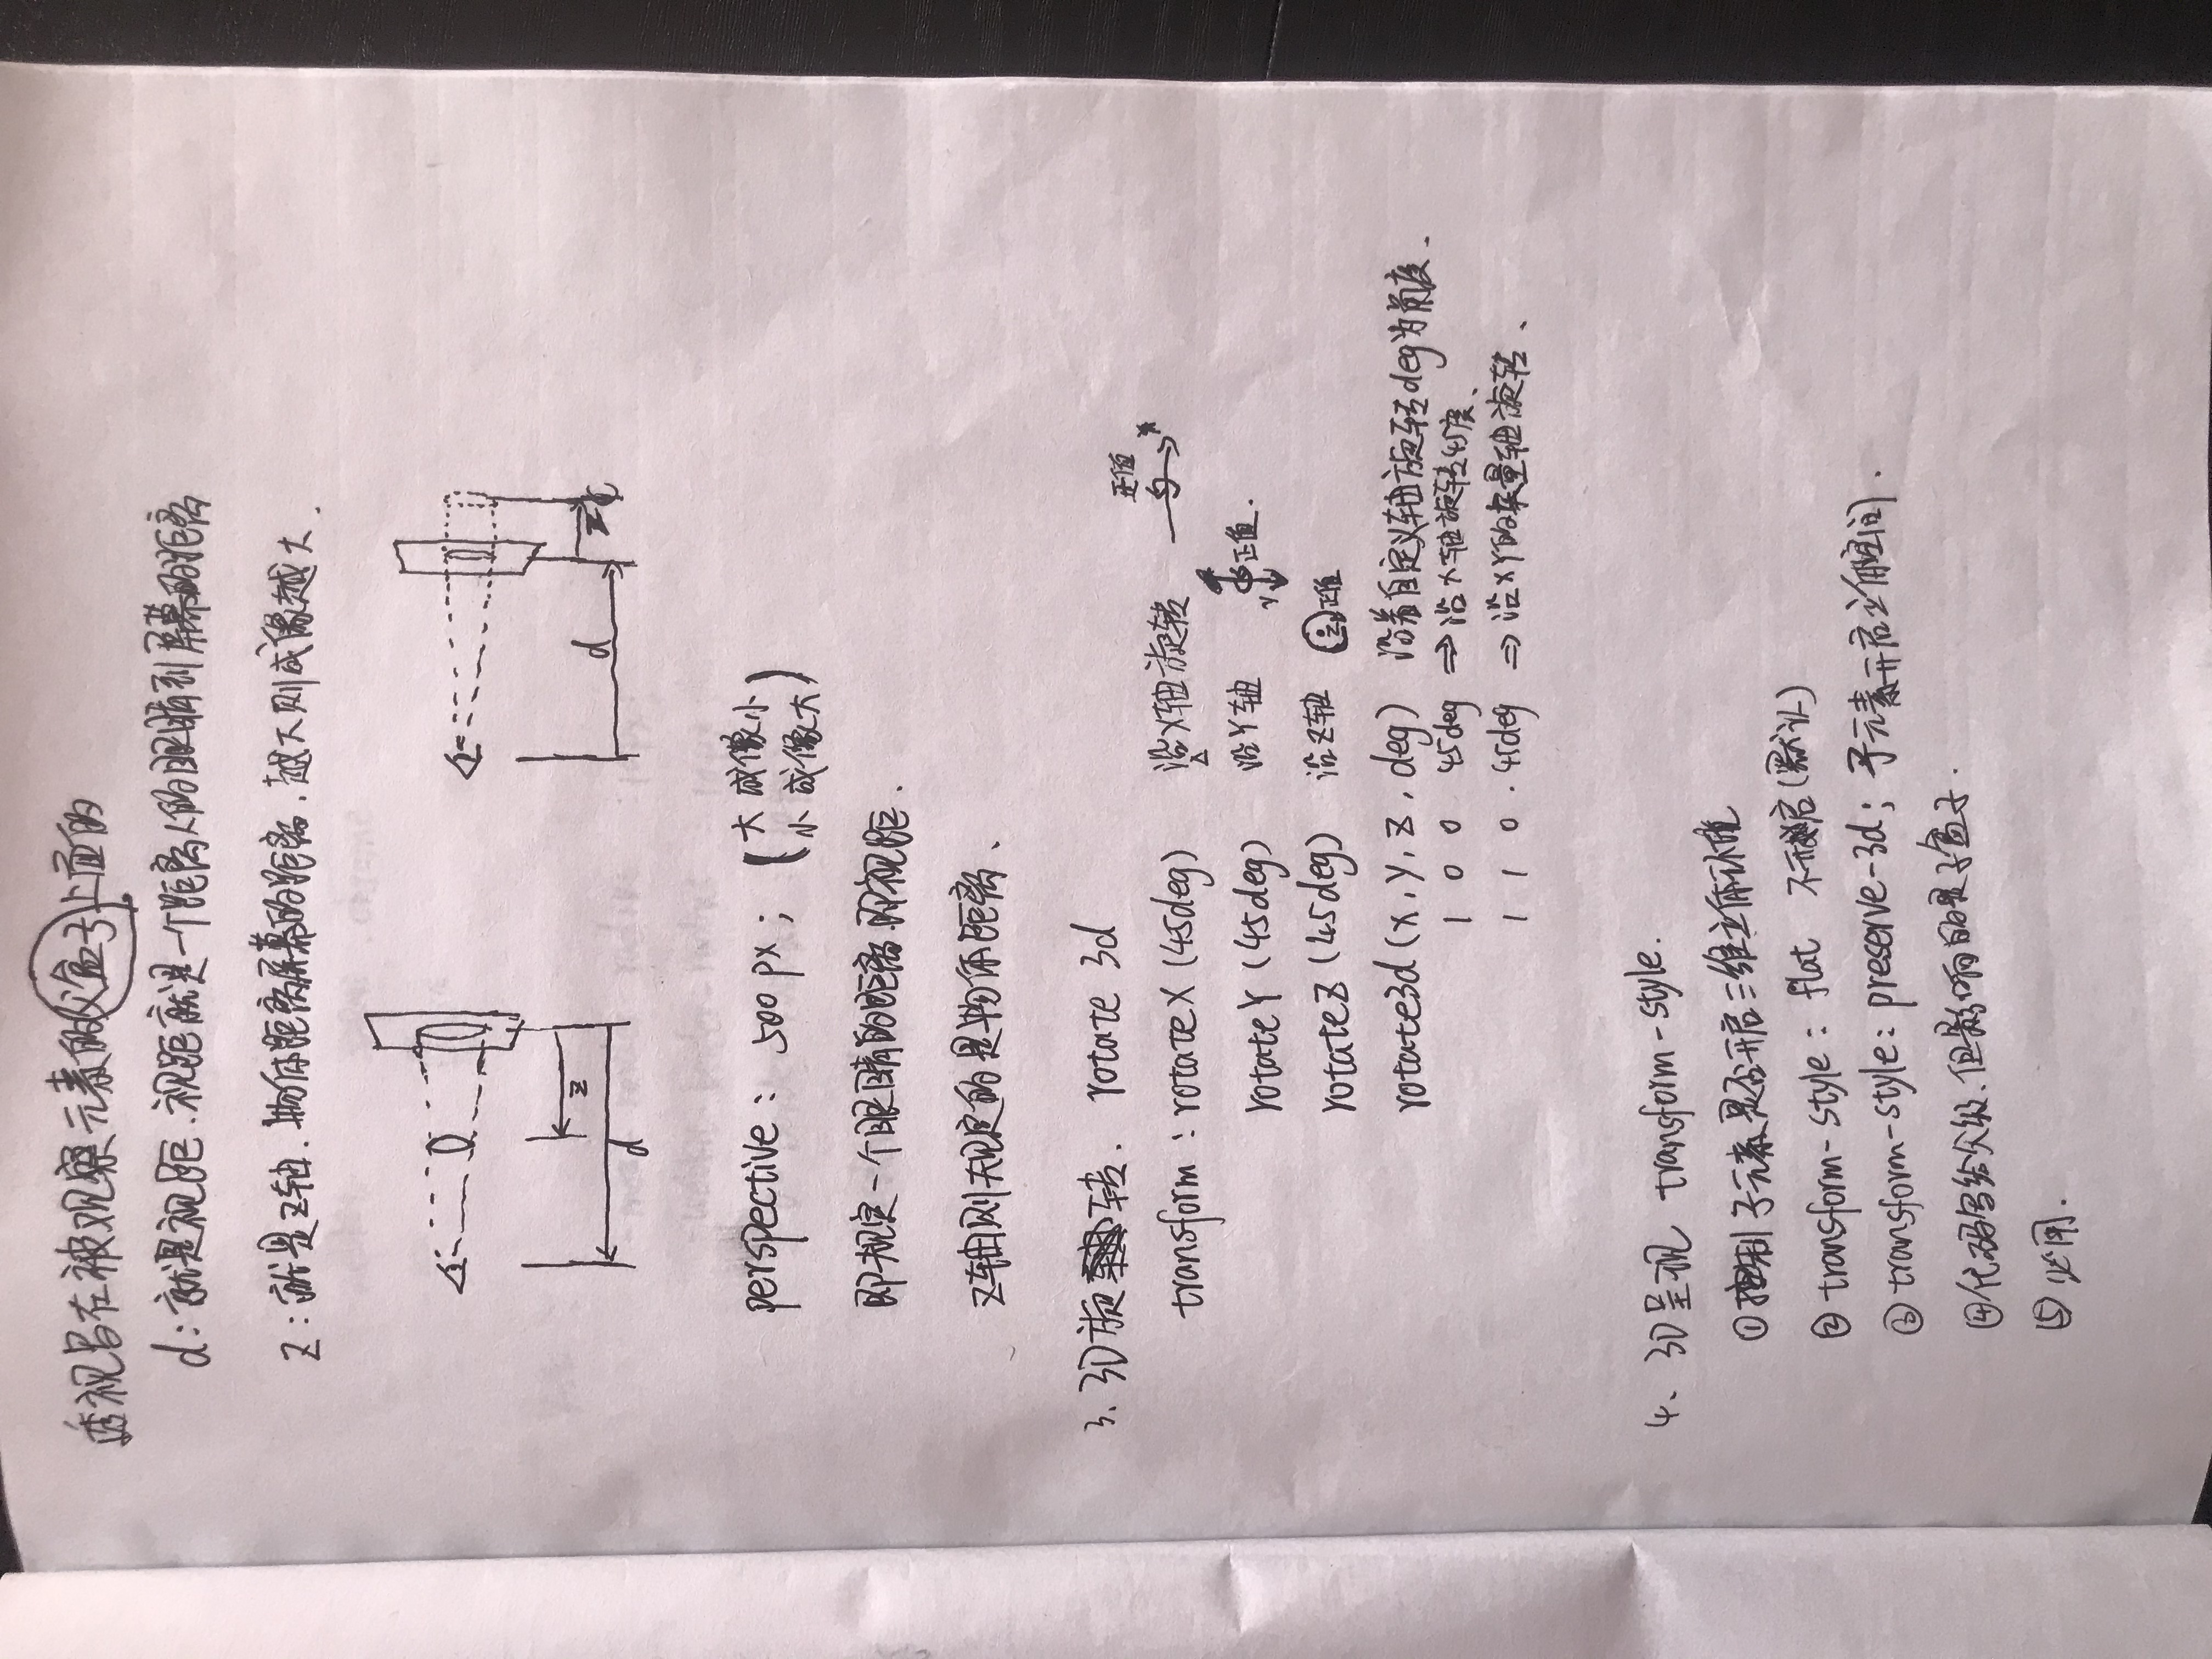 透视写在被观察元素的父盒子上面的
d：就是视距．视距就是一个距离人的眼睛到屏幕的距离
z：就是z轴．物体距离屏幕的距离．越大则成像越大．
z
d
d
z
perspective： 500px； (大 成像小
小 成像大)
即规定一个眼睛的距离．即视距．
z轴则规定的是物体距离、
3、3D旋转． rotate 3d
正值
x
transform：rotateX(45deg) 沿X轴旋转
rotateY(45deg) 沿Y轴 Y 正值．
rotateZ(45deg) 沿Z轴 Z 正值
rotate3d(x, y, z, deg) 沿着自定义轴旋转deg为角度．
1 0 0 45deg ⇒ 沿x轴旋转45度、
1 1 0 . 45deg ⇒ 沿XY的矢量轴旋转、
4、3D呈现 transform-style.
①控制子元素是否开启三维立体环境
②transform-style：flat 不开启(默认)
③transform-style：preserve-3d；子元素开启立体空间．
④代码写给父级．但影响的是子盒子．
⑤必用．